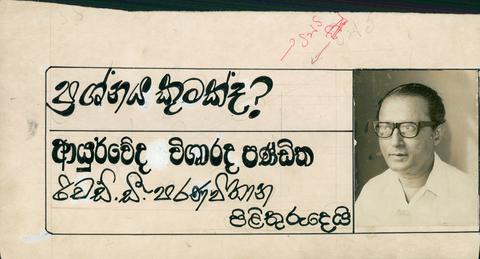 ප්‍රශ්නය කුමක්ද?
ආයුර්වේද විශාරද පණ්ඩිත
ඩබ්. සී. පරණවිතාන
පිළිතුරුදෙයි